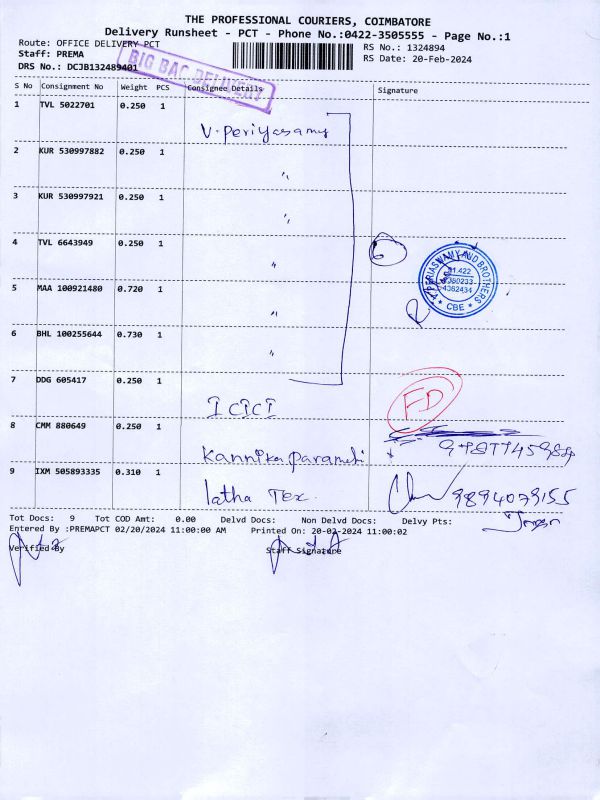 THE PROFESSIONAL COURIERS, COIMBATORE
Delivery Runsheet - PCT - Phone No.:0422-3505555 - Page No.:1
Route: OFFICE DELIVERY PCT
Staff: PREMA
DRS No.: DCJB132489401
RS No.: 1324894
RS Date: 20-Feb-2024
BIG BAG DELIVERY
S No Consignment No Weight PCS Consignee Details Signature
1 TVL 5022701 0.250 1 V. Periyasamy
2 KUR 530997882 0.250 1 "
3 KUR 530997921 0.250 1 "
4 TVL 6643949 0.250 1 " 6
5 MAA 100921480 0.720 1 "
AND BROTHERS
CBE
6 BHL 100255644 0.730 1 "
7 DDG 605417 0.250 1 ICICI FD
8 CMM 880649 0.250 1 Kannika
9 IXM 505893335 0.310 1 latha Tex. 9894079155
Tot Docs: 9 Tot COD Amt: 0.00 Delvd Docs: Non Delvd Docs: Delvy Pts:
Entered By :PREMAPCT 02/20/2024 11:00:00 AM Printed On: 20-02-2024 11:00:02
Verified By Staff Signature